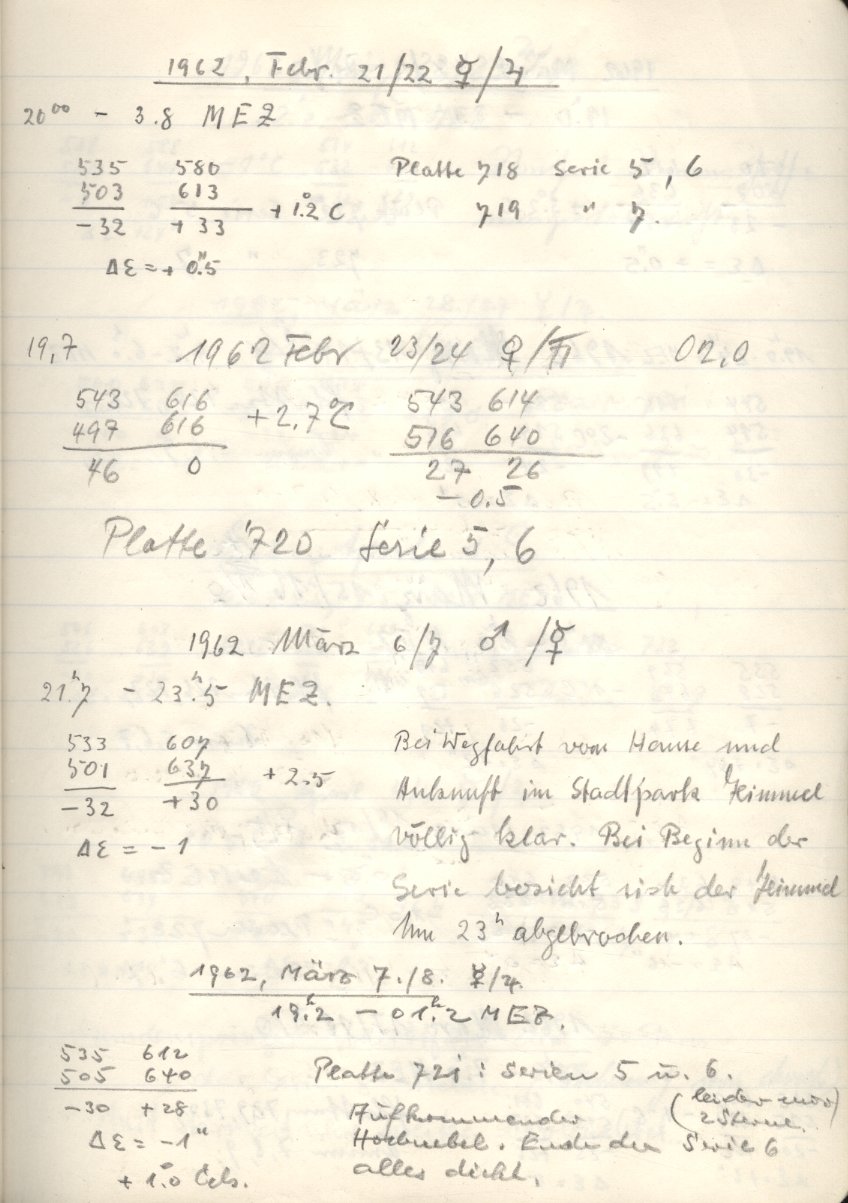 1962, Febr. 21/22 ☿/♃
20⁰⁰ - 3.8 MEZ
535 580 Platte 718 Serie 5, 6
503 613 + 1.2°C 719 " 7.
-32 + 33
Δε = + 0."5
19,7 1962 Febr 23/24 ♀/♄ 02,0
543 616 +2,7°C 543 614
497 616 516 640
46 0 27 26
- 0.5
Platte 720 Serie 5, 6
1962 März 6/7 ♂/☿
21.ʰ7 - 23.ʰ5 MEZ.
533 607 Bei Wegfahrt vom Hause und
501 637 + 2.5 Ankunft im Stadtpark Himmel
-32 +30 völlig klar. Bei Beginn der
Δε = - 1 Serie bezieht sich der Himmel
Um 23ʰ abgebrochen.
1962, März 7./8. ☿/♃
19.ʰ2 - 01.ʰ2 MEZ.
535 612 Platte 721: Serien 5 u. 6.
505 640 (leider nur
-30 +28 Aufkommender 2 Sterne.)
Δε = -1" Hochnebel. Ende der Serie 6
+ 1.°0 Cels. alles dicht.